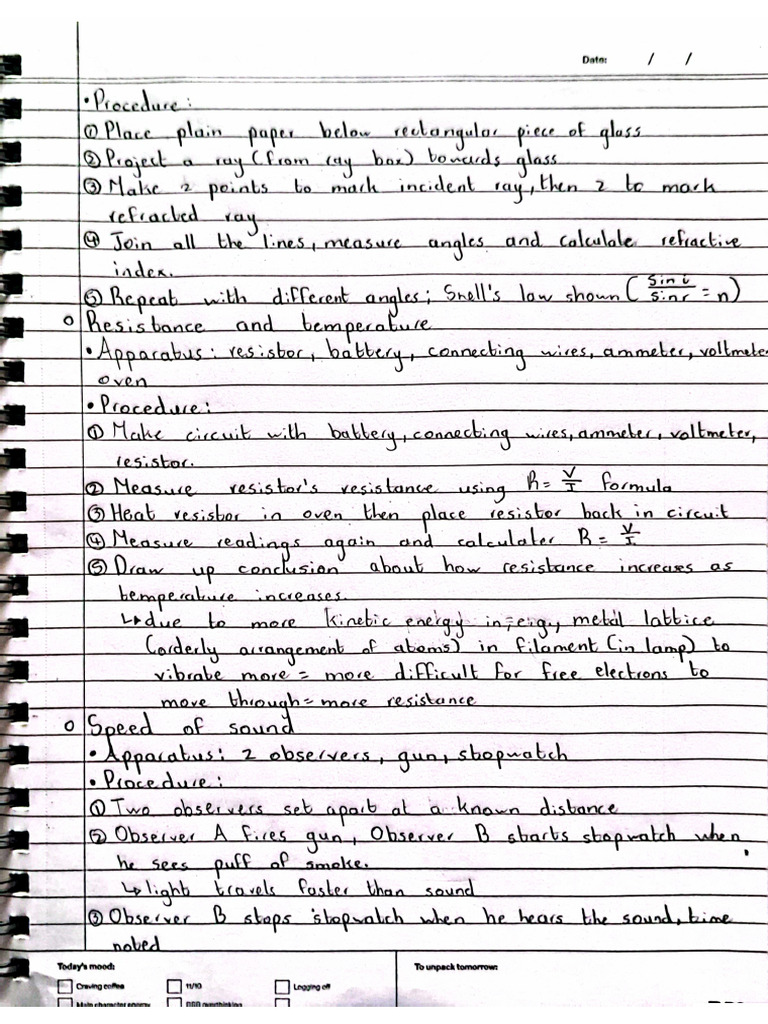 Date: / /
• Procedure:
① Place plain paper below rectangular piece of glass
② Project a ray (from ray box) towards glass
③ Make 2 points to mark incident ray, then 2 to mark
refracted ray
④ Join all the lines, measure angles and calculate refractive
index.
⑤ Repeat with different angles; Snell's law shown (sin i / sin r = n)
o Resistance and temperature
• Apparatus: resistor, battery, connecting wires, ammeter, voltmeter
oven
• Procedure:
① Make circuit with battery, connecting wires, ammeter, voltmeter,
resistor.
② Measure resistor's resistance using R = V/I formula
③ Heat resistor in oven then place resistor back in circuit
④ Measure readings again and calculater R = V/I
⑤ Draw up conclusion about how resistance increases as
temperature increases.
↳ due to more kinetic energy in metal lattice
(orderly arrangement of atoms) in filament (in lamp) to
vibrate more = more difficult for free electrons to
move through = more resistance
o Speed of sound
• Apparatus: 2 observers, gun, stopwatch
• Procedure:
① Two observers set apart at a known distance
② Observer A fires gun, Observer B starts stopwatch when
he sees puff of smoke.
↳ light travels faster than sound
③ Observer B stops stopwatch when he hears the sound, time
noted
Today's mood: To unpack tomorrow:
Craving coffee 11/10 Logging off
Main character energy overthinking